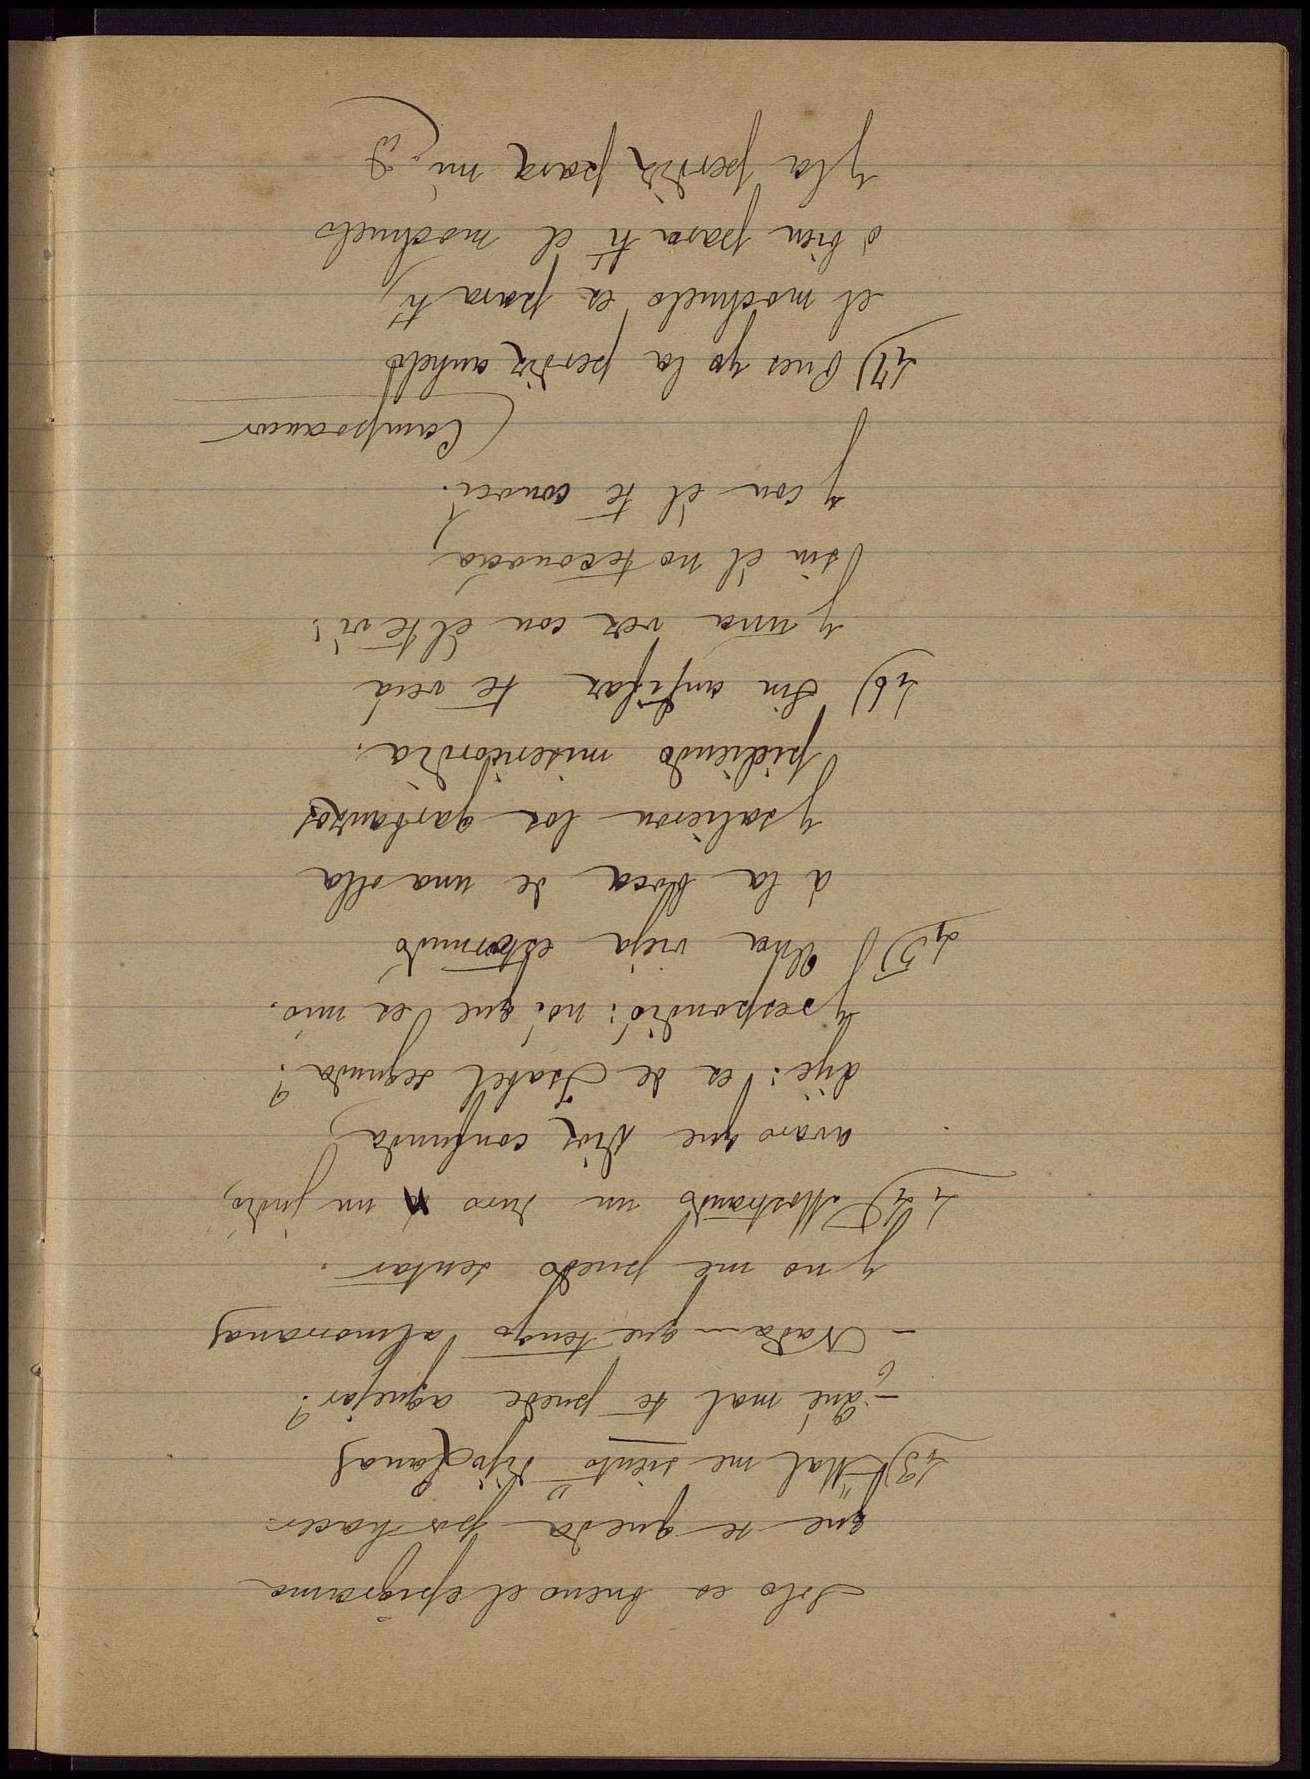 Solo es bueno el epigrama
que se queda por hacer.
43) "Mal me siento" dijo Lamas
- ¿Qué mal te puede aquejar?
- Nada... que tengo almorranas
y no me puedo sentar.
44) Mostrando un duro a un judío,
avaro que Dios confunda
dije: es de Isabel segunda?
y respondió: no, que es mío.
45) Una vieja estornudó
á la boca de una olla
y salieron los garbanzos
pidiendo misericordia.
46) Sin antifaz te veia
y una vez con él te vi;
sin él no te conocia,
y con él te conocí.
Campoamor
47) Pues yo la perdiz anhelo
el mochuelo es para ti,
ó bien para tí el mochuelo
y la perdiz para mí.